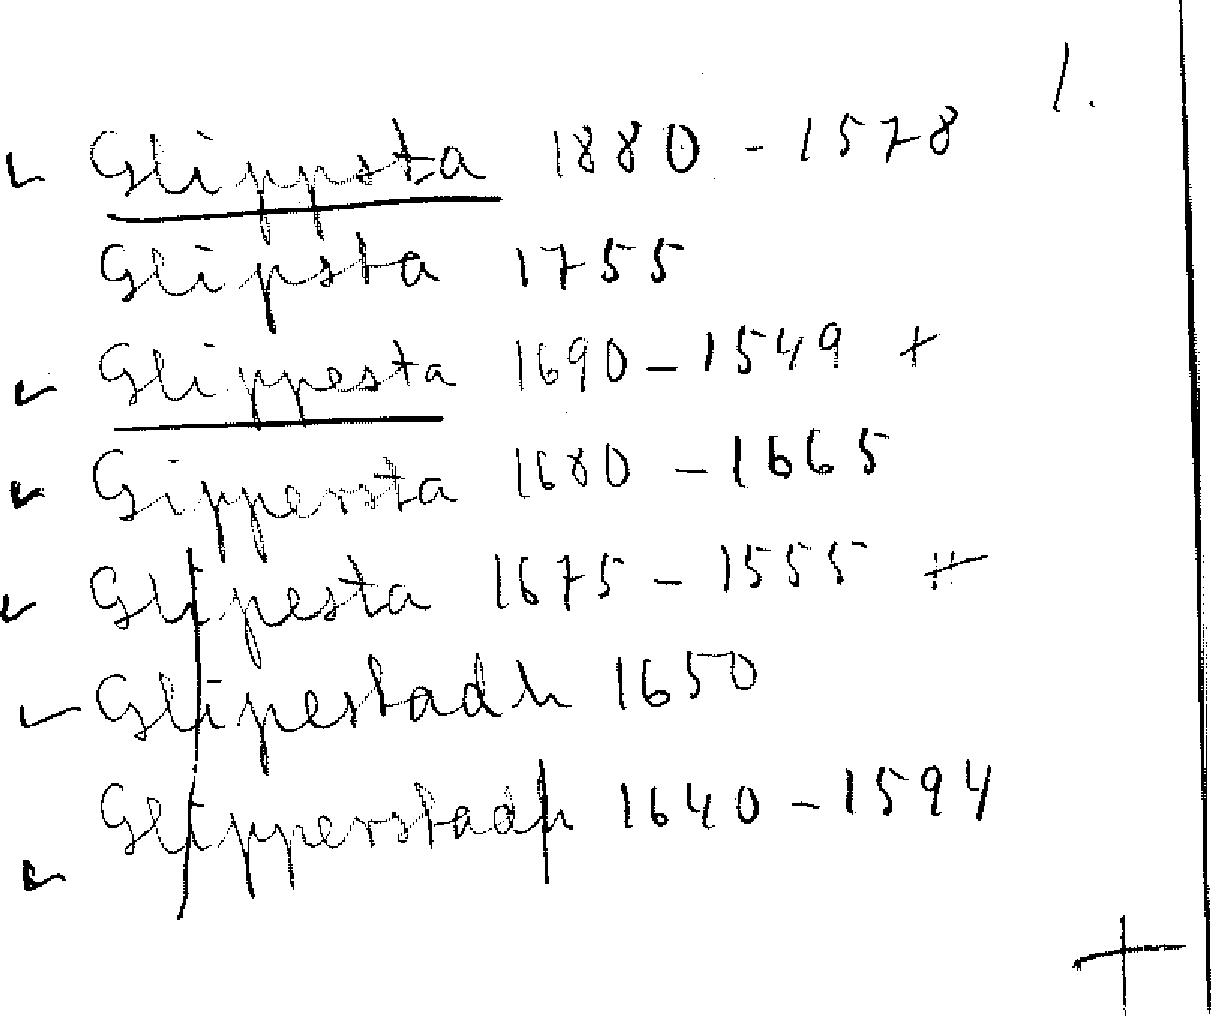 1.
Glippsta 1880 - 1578
Glipsta 1755
Glippesta 1690 - 1549 +
Gippersta 1680 - 1665
Glipesta 1675 - 1555 +
Glipestadh 1650
Glipperstadh 1640 - 1594
+